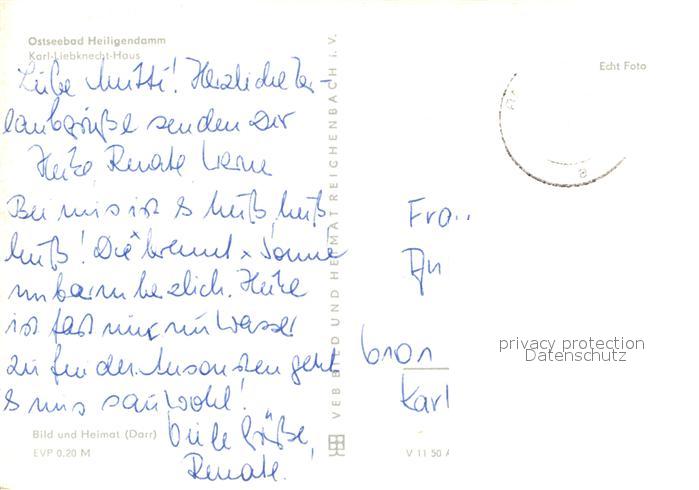 Ostseebad Heiligendamm
Karl-Liebknecht-Haus
Liebe Mutti! Herzliche Ur-
laubsgrüße senden Dir
Heike Renate
Bei uns ist es heiß, heiß
heiß! Die Sonne brennt
unbarmherzlich. Heike
ist fast nur im Wasser
zu finden. Ansonsten geht
es uns sauwohl!
Viele Grüße,
Renate.
Bild und Heimat (Darr)
EVP 0,20 M
VEB BILD UND HEIMAT REICHENBACH i. V.
Echt Foto
Fra
6101
Karl
V 11 50 A
privacy protection
Datenschutz